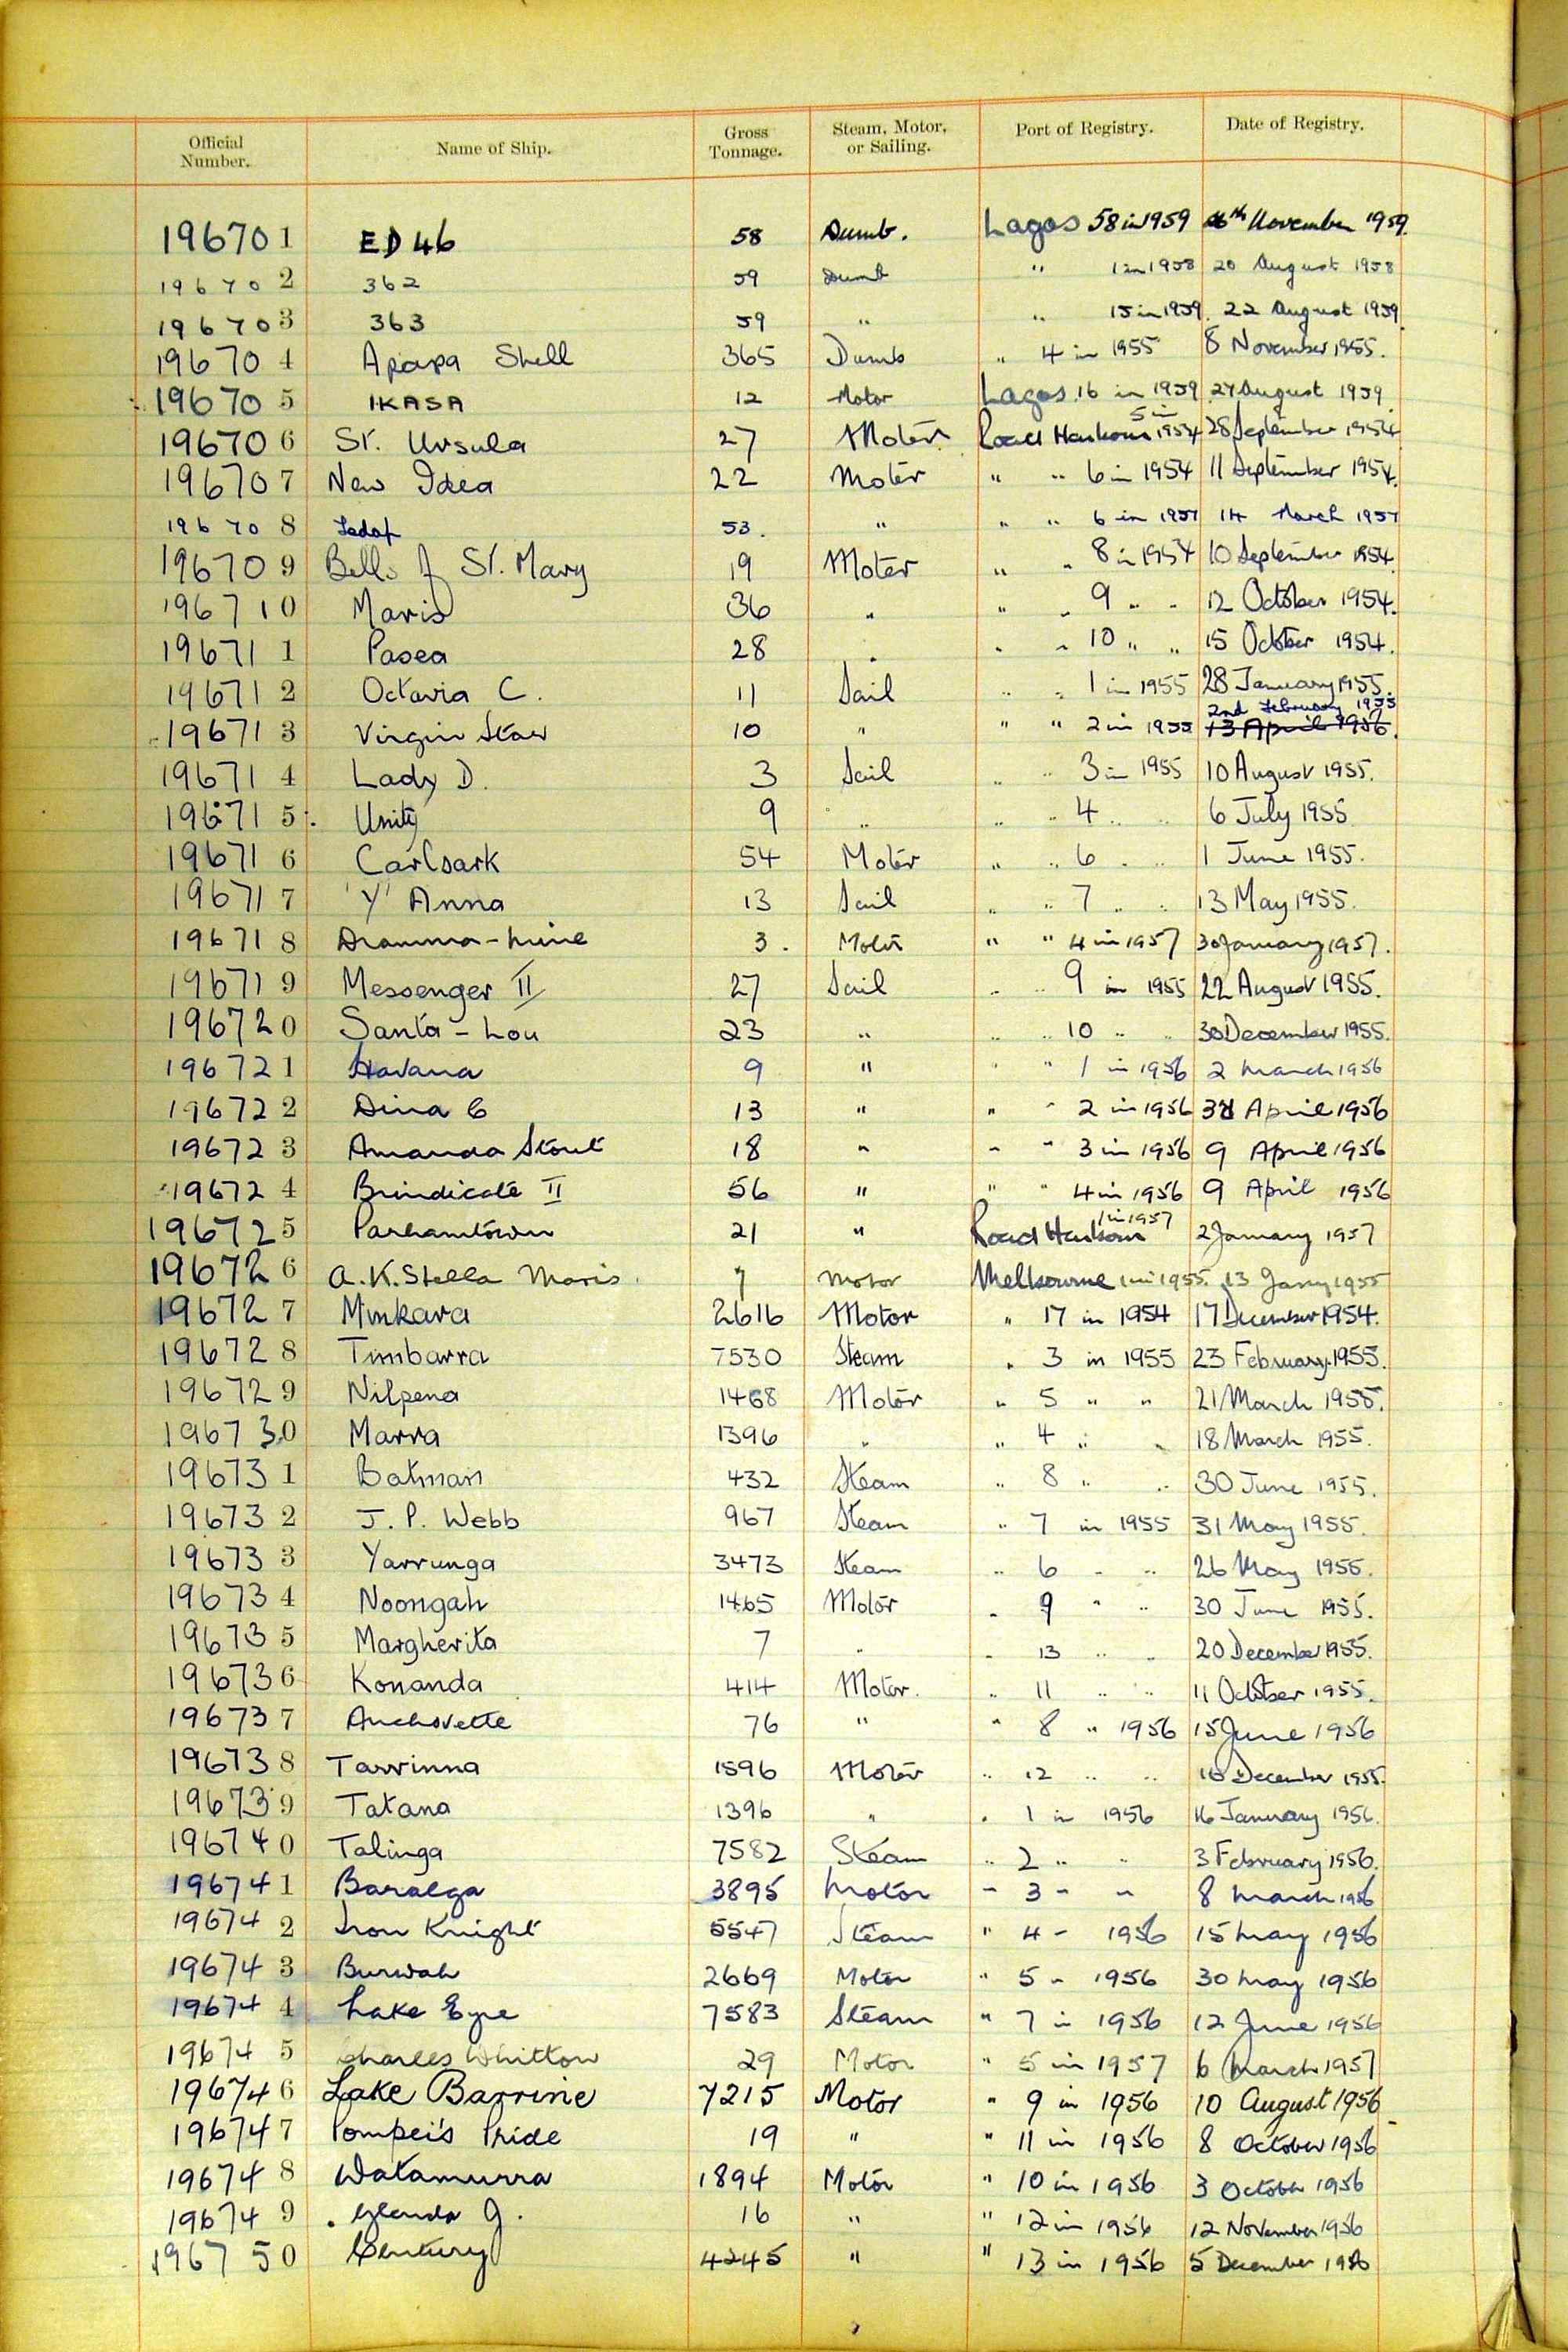 Official Number. Name of Ship. Gross Tonnage. Steam, Motor, or Sailing. Port of Registry. Date of Registry.
196701 ED 46 58 Dumb. Lagos 58 in 1959 November 1959.
196702 362 59 Dumb " 1 in 1958 20 August 1958
196703 363 59 " " 15 in 1959. 22 August 1959
196704 Apapa Shell 365 Dumb " 4 in 1955 8 November 1955.
196705 IKASA 12 Motor Lagos 16 in 1959 27 August 1959
196706 St. Ursula 27 Motor Road Harbour 5 in 1954 28 September 1954
196707 New Idea 22 Motor " " 6 in 1954 11 September 1954.
196708 53. " " " 6 in 1957 14 March 1957
196709 Bells of St. Mary 19 Motor " " 8 in 1954 10 September 1954.
196710 Maris 36 " " " 9 " " 12 October 1954.
196711 Pasea 28 " " " 10 " " 15 October 1954.
196712 Octavia C. 11 Sail " " 1 in 1955 28 January 1955.
196713 Virgin Star 10 " " " 2 in 1955 2nd February 1955 13 April 1956.
196714 Lady D. 3 Sail " " 3 in 1955 10 August 1955.
196715 Unity 9 " " " 4 " " 6 July 1955.
196716 Carlsark 54 Motor " " 6 " " 1 June 1955.
196717 'Y' Anna 13 Sail " " 7 " " 13 May 1955.
196718 3. Motor " " 4 in 1957 30 January 1957.
196719 Messenger II 27 Sail " " 9 in 1955 22 August 1955.
196720 Santa-Lou 23 " " " 10 " " 30 December 1955.
196721 Havana 9 " " " 1 in 1956 2 March 1956
196722 Dina C 13 " " " 2 in 1956 3rd April 1956
196723 Amanda Stout 18 " " " 3 in 1956 9 April 1956
196724 Brindicate II 56 " " " 4 in 1956 9 April 1956
196725 Parhamtown 21 " Road Harbour 1 in 1957 2 January 1957
196726 A.K. Stella Maris. 7 Motor Melbourne 1 in 1955. 13 Jany 1955
196727 Minkara 2616 Motor " 17 in 1954 17 December 1954.
196728 Timbarra 7530 Steam " 3 in 1955 23 February 1955.
196729 Nilpena 1468 Motor " 5 " " 21 March 1955.
196730 Marra 1396 " " 4 " " 18 March 1955.
196731 Batman 432 Steam " 8 " " 30 June 1955.
196732 J. P. Webb 967 Steam " 7 in 1955 31 May 1955.
196733 Yarrunga 3473 Steam " 6 " " 26 May 1955.
196734 Noongah 1465 Motor " 9 " " 30 June 1955.
196735 Margherita 7 " " 13 " " 20 December 1955.
196736 Konanda 414 Motor. " 11 " " 11 October 1955.
196737 Anchovette 76 " " 8 " 1956 15 June 1956
196738 Tarrinna 1896 Motor " 12 " " December 1955.
196739 Tatana 1396 " " 1 in 1956 16 January 1956.
196740 Talinga 7582 Steam " 2 " " 3 February 1956.
196741 Baralga 3895 Motor " 3 " " 8 March 1956
196742 Iron Knight 5547 Steam " 4 " 1956 15 May 1956
196743 Burwah 2669 Motor " 5 " 1956 30 May 1956
196744 Lake Eyre 7583 Steam " 7 in 1956 12 June 1956
196745 Charles Whitton 29 Motor " 5 in 1957 6 March 1957
196746 Lake Barrine 7215 Motor " 9 in 1956 10 August 1956
196747 Pompei's Pride 19 " " 11 in 1956 8 October 1956
196748 Watamurra 1894 Motor " 10 in 1956 3 October 1956
196749 Glenda G. 16 " " 12 in 1956 12 November 1956
196750 Century 4245 " " 13 in 1956 5 December 1956